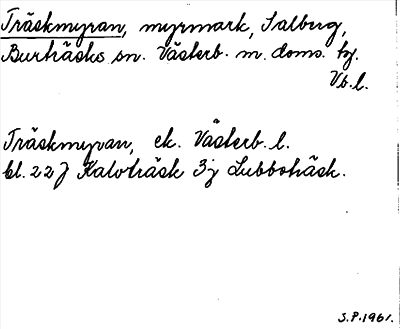 Träskmyran, myrmark, Salberg,
Burträsks sn. Västerb. m. doms. bg.
Vb. l.
Träskmyran, ek. Västerb. l.
bl. 22 J Kalvträsk 3j Lubboträsk.
S.P. 1961.